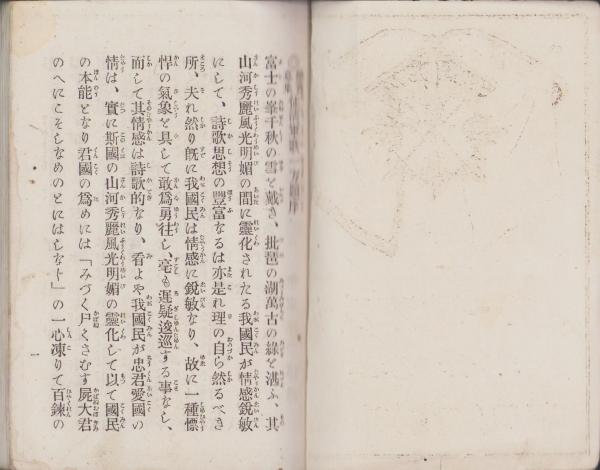 富士の峯千秋の雪を戴き、批琶の湖萬古の綠を湛ふ、其
山河秀麗風光明媚の間に靈化されたる我國民が情感銳敏
にして、詩歌思想の豐富なるは亦是れ理の自ら然るべき
所、夫れ然り旣に我國民は情感に銳敏なり、故に一種慓
悍の氣象を具して敢爲勇徃し、毫も遲疑逡巡する事なし、
而して其情感は詩歌的なり、看よや我國民が忠君愛國の
情は、實に斯國の山河秀麗風光明媚の靈化して以て國民
の本能となり君國の爲めには「みづく尸くさむす屍大君
のへにこそしなめのとにはしなじ」の一心凍りて百鍊の
一